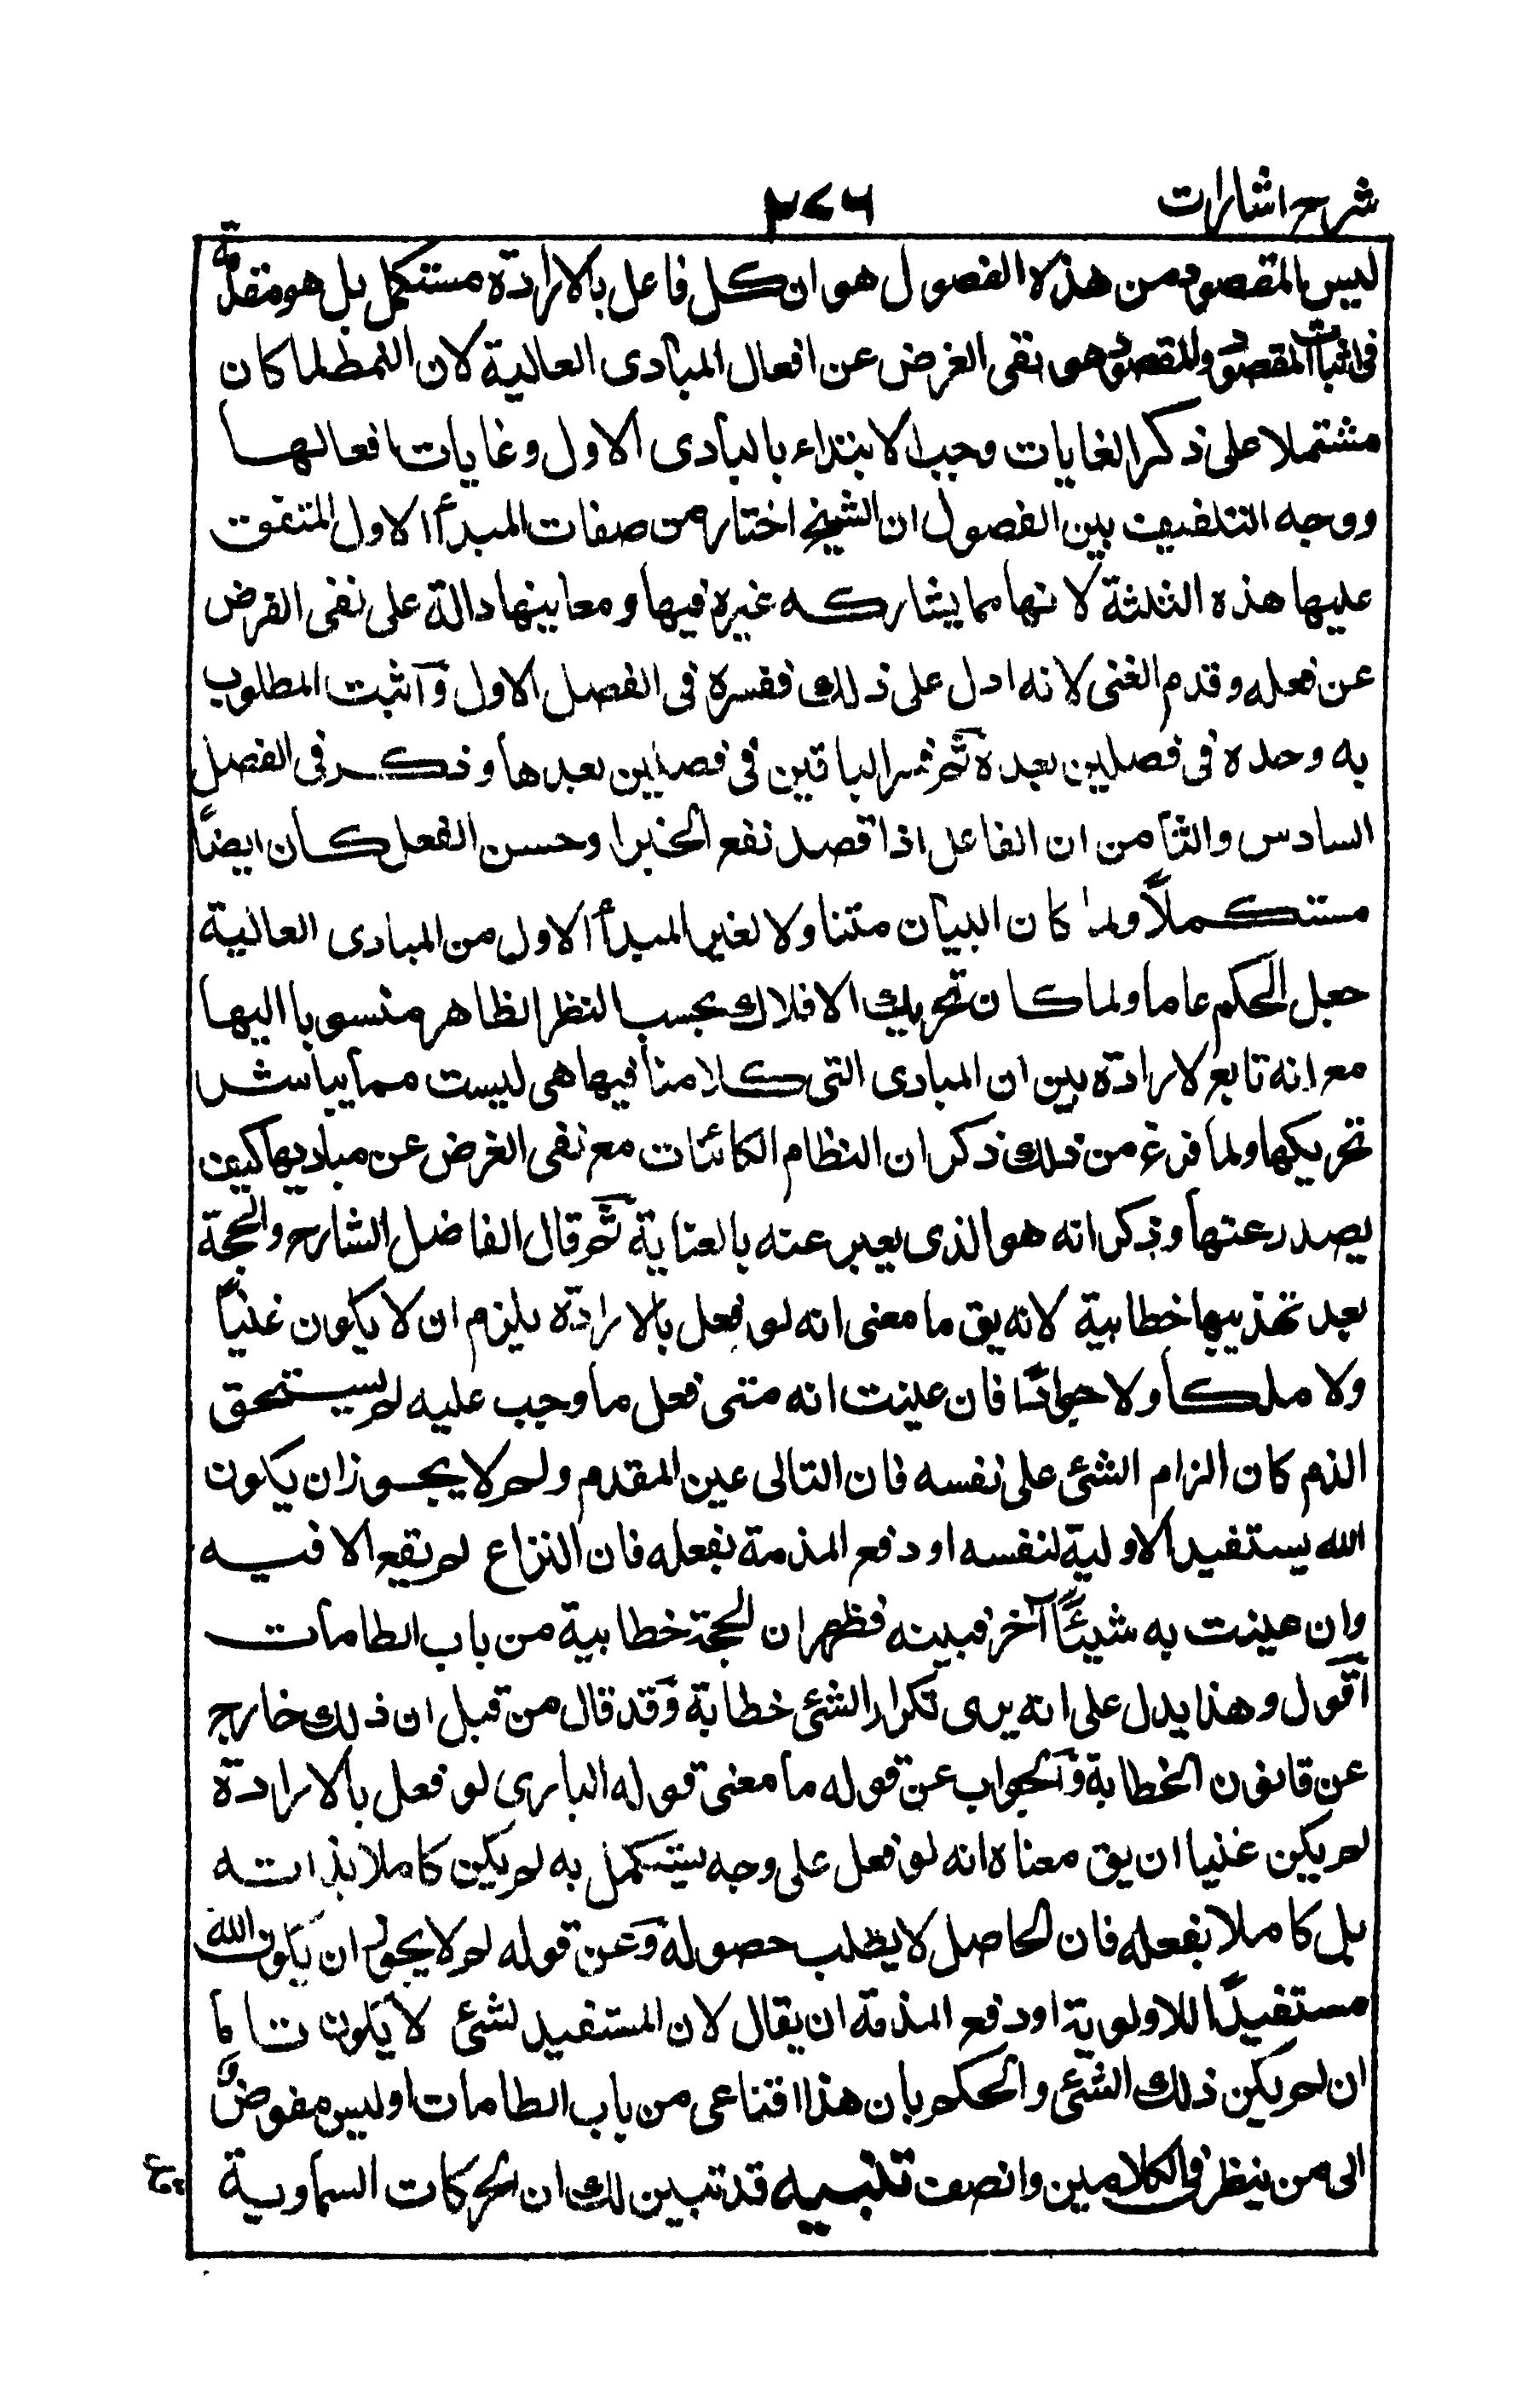 شرح اشارات
٣٧٦
ليس المقصود من هذه الفصول هو ان كل فاعل بالارادة مستكمل بل هو مقدمة
فى اثبات المقصود والمقصود هو نفى الغرض عن افعال المبادى العالية لان النمط لما كان
مشتملا على ذكر الغايات وجب الابتداء بالمبادى الاول وغايات افعالها
ووجه التلفيق بين الفصول ان الشيخ اختار من صفات المبدأ الاول المتفق
عليها هذه الثلثة لانها مما يشاركه غيره فيها ومعانيها دالة على نفى الغرض
عن فعله وقدم الغنى لانه ادل على ذلك ففسره فى الفصل الاول واثبت المطلوب
به وحده فى فصلين بعده ثم فسر الباقين فى فصلين بعدها وذكر فى الفصل
السادس والثامن ان الفاعل اذا قصد نفع الخير او حسن الفعل كان ايضاً
مستكملاً ولما كان البيان متناولا لغير المبدأ الاول من المبادى العالية
جعل الحكم عاما ولما كان تحريك الافلاك بحسب النظر الظاهر منسوبا اليها
مع انه تابع لارادة بين ان المبادى التى كلامنا فيها هى ليست مما يباشر
تحريكها ولما فرغ من ذلك ذكر ان النظام الكائنات مع نفى الغرض عن مباديها كيف
يصدر عنها وذكر انه هو الذى يعبر عنه بالعناية ثم قال الفاضل الشارح والحجة
بعد تهذيبها خطابية لانه يق ما معنى انه لو فعل بالارادة يلزم ان لا يكون غنياً
ولا ملكاً ولا جواداً فان عنيت انه متى فعل ما وجب عليه لم يستحق
الذم كان الزام الشئ على نفسه فان التالى عين المقدم ولم لا يجوز ان يكون
الله يستفيد الاولية لنفسه او دفع المذمة بفعله فان النزاع لم يقع الا فيه
وان عنيت به شيئاً آخر فبينه فظهر ان الحجة خطابية من باب الطامات
اقول وهذا يدل على انه يرى تكرار الشئ خطابة وقد قال من قبل ان ذلك خارج
عن قانون الخطابة والجواب عن قوله ما معنى قوله البارى لو فعل بالارادة
لم يكن غنيا ان يق معناه انه لو فعل على وجه يستكمل به لم يكن كاملا بذاته
بل كاملا بفعله فان الحاصل لا يطلب حصوله وعن قوله لم لا يجوز ان يكون الله
مستفيداً للاولوية او دفع المذمة ان يقال لان المستفيد لشئ لا يكون تاما
ان لم يكن ذلك الشئ والحكم بان هذا اقناعى من باب الطامات او ليس مفوض
الى من ينظر فى الكلامين وانصف تنبيه قد تبين لك ان الحركات السماوية